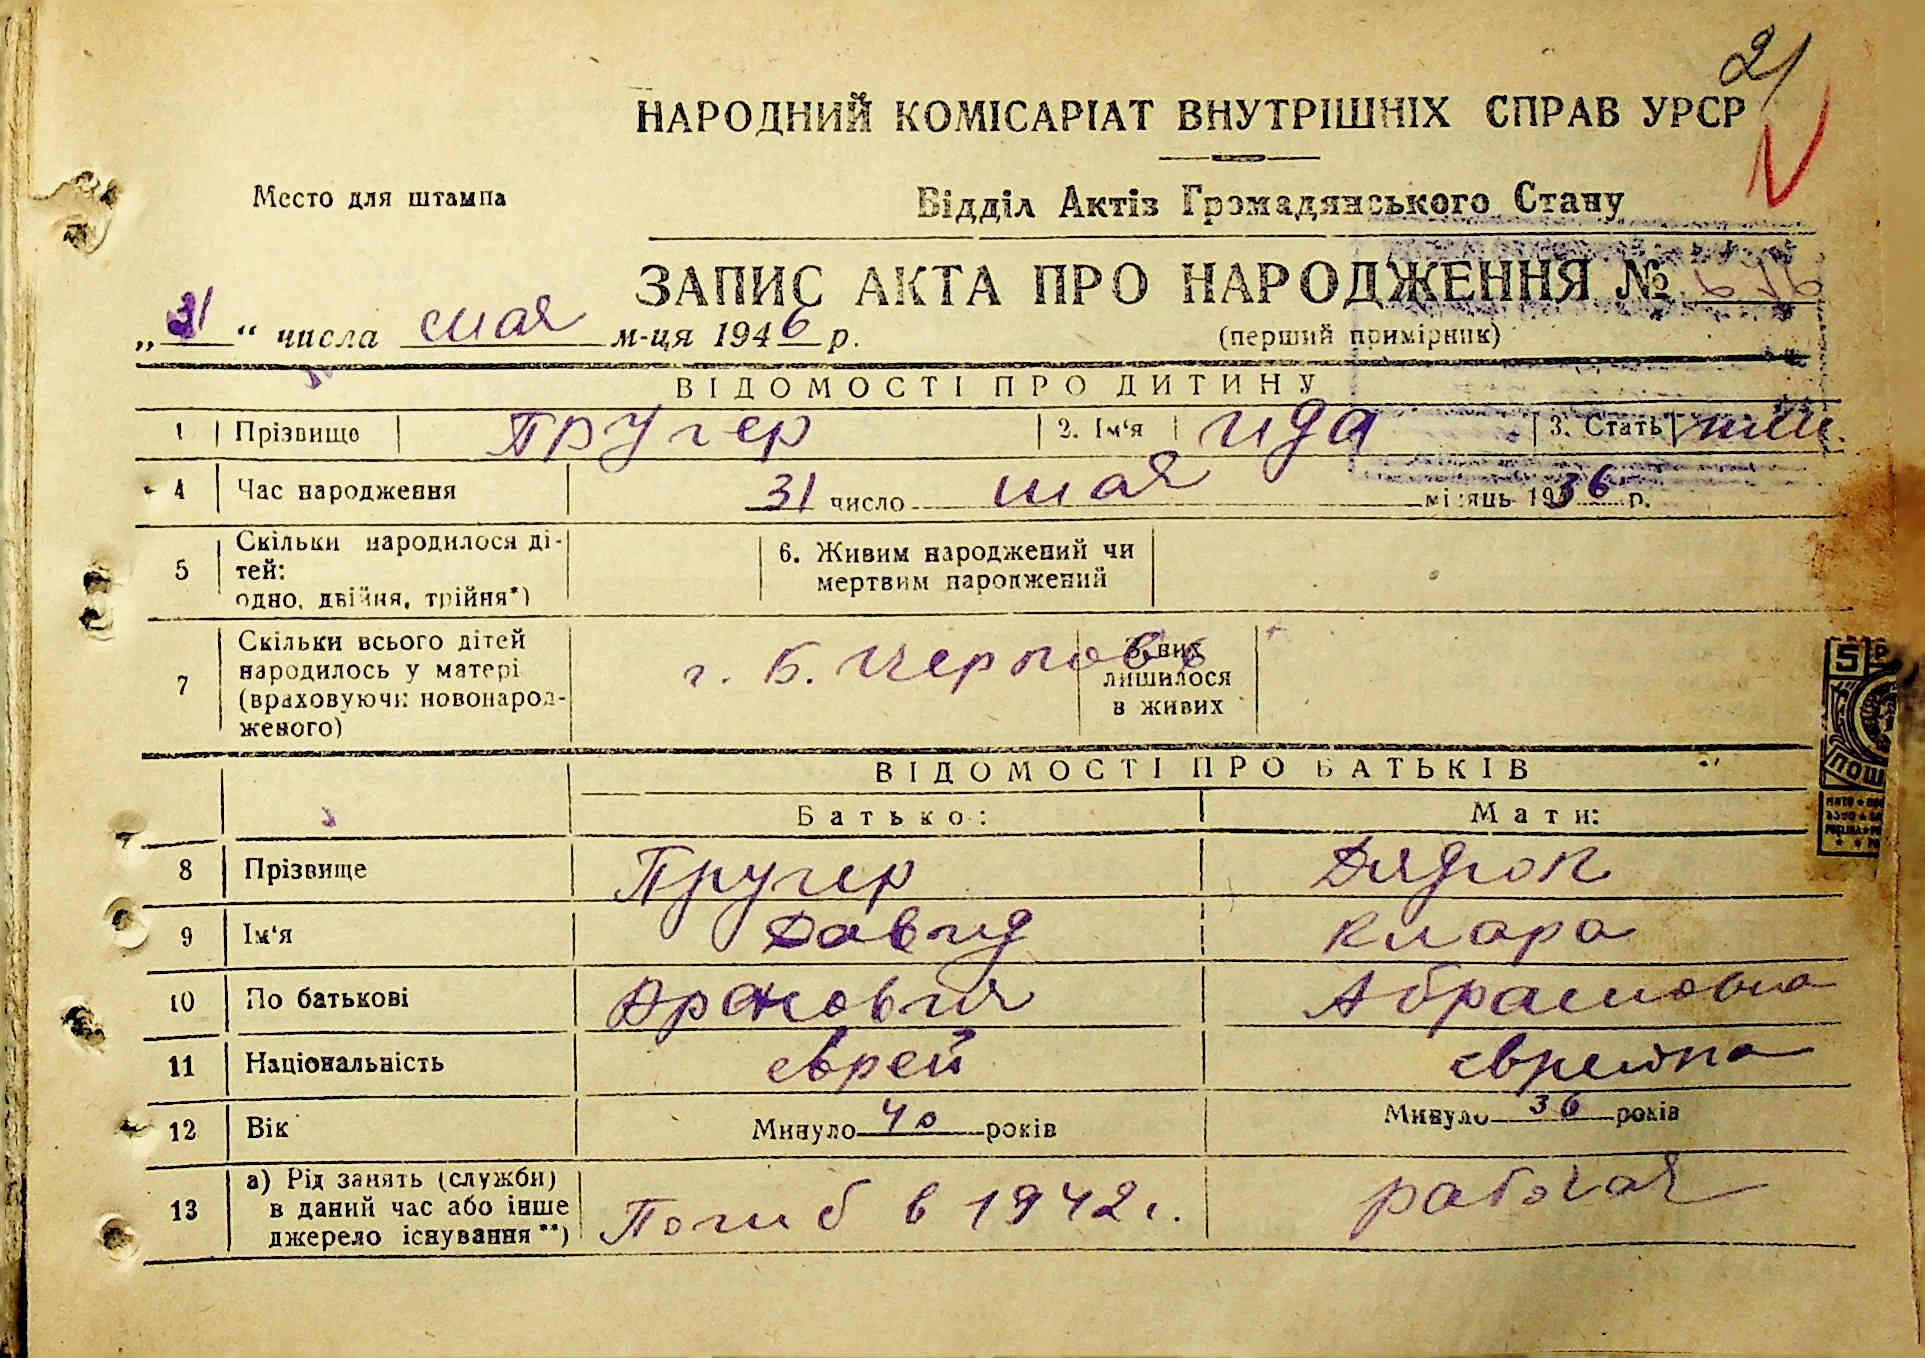 21
НАРОДНИЙ КОМІСАРІАТ ВНУТРІШНІХ СПРАВ УРСР
Место для штампа
Відділ Актів Громадянського Стану
ЗАПИС АКТА ПРО НАРОДЖЕННЯ №
„31“ числа мая м-ця 1946 р.
(перший примірник)
ВІДОМОСТІ ПРО ДИТИНУ
1 Прізвище Пругер 2. Ім‘я Ида 3. Стать
4 Час народження 31 число мая місяць 1936 р.
5 Скільки народилося ді-
тей:
одно, двійня, трійня*)
6. Живим народжений чи
мертвим народжений
7 Скільки всього дітей
народилось у матері
(враховуючи новонарод-
женого)
г. Б. Церковь
З них
лишилося
в живих
5
ПОШ
ВІДОМОСТІ ПРО БАТЬКІВ
Батько: Мати:
8 Прізвище Пругер Дядюк
9 Ім‘я Давид Клара
10 По батькові Ароновичь Абрамовна
11 Національність еврей еврейка
12 Вік Минуло 40 років Минуло 36 років
13 а) Рід занять (служби)
в даний час або інше
джерело існування**)
Погиб в 1942 г. рабочая